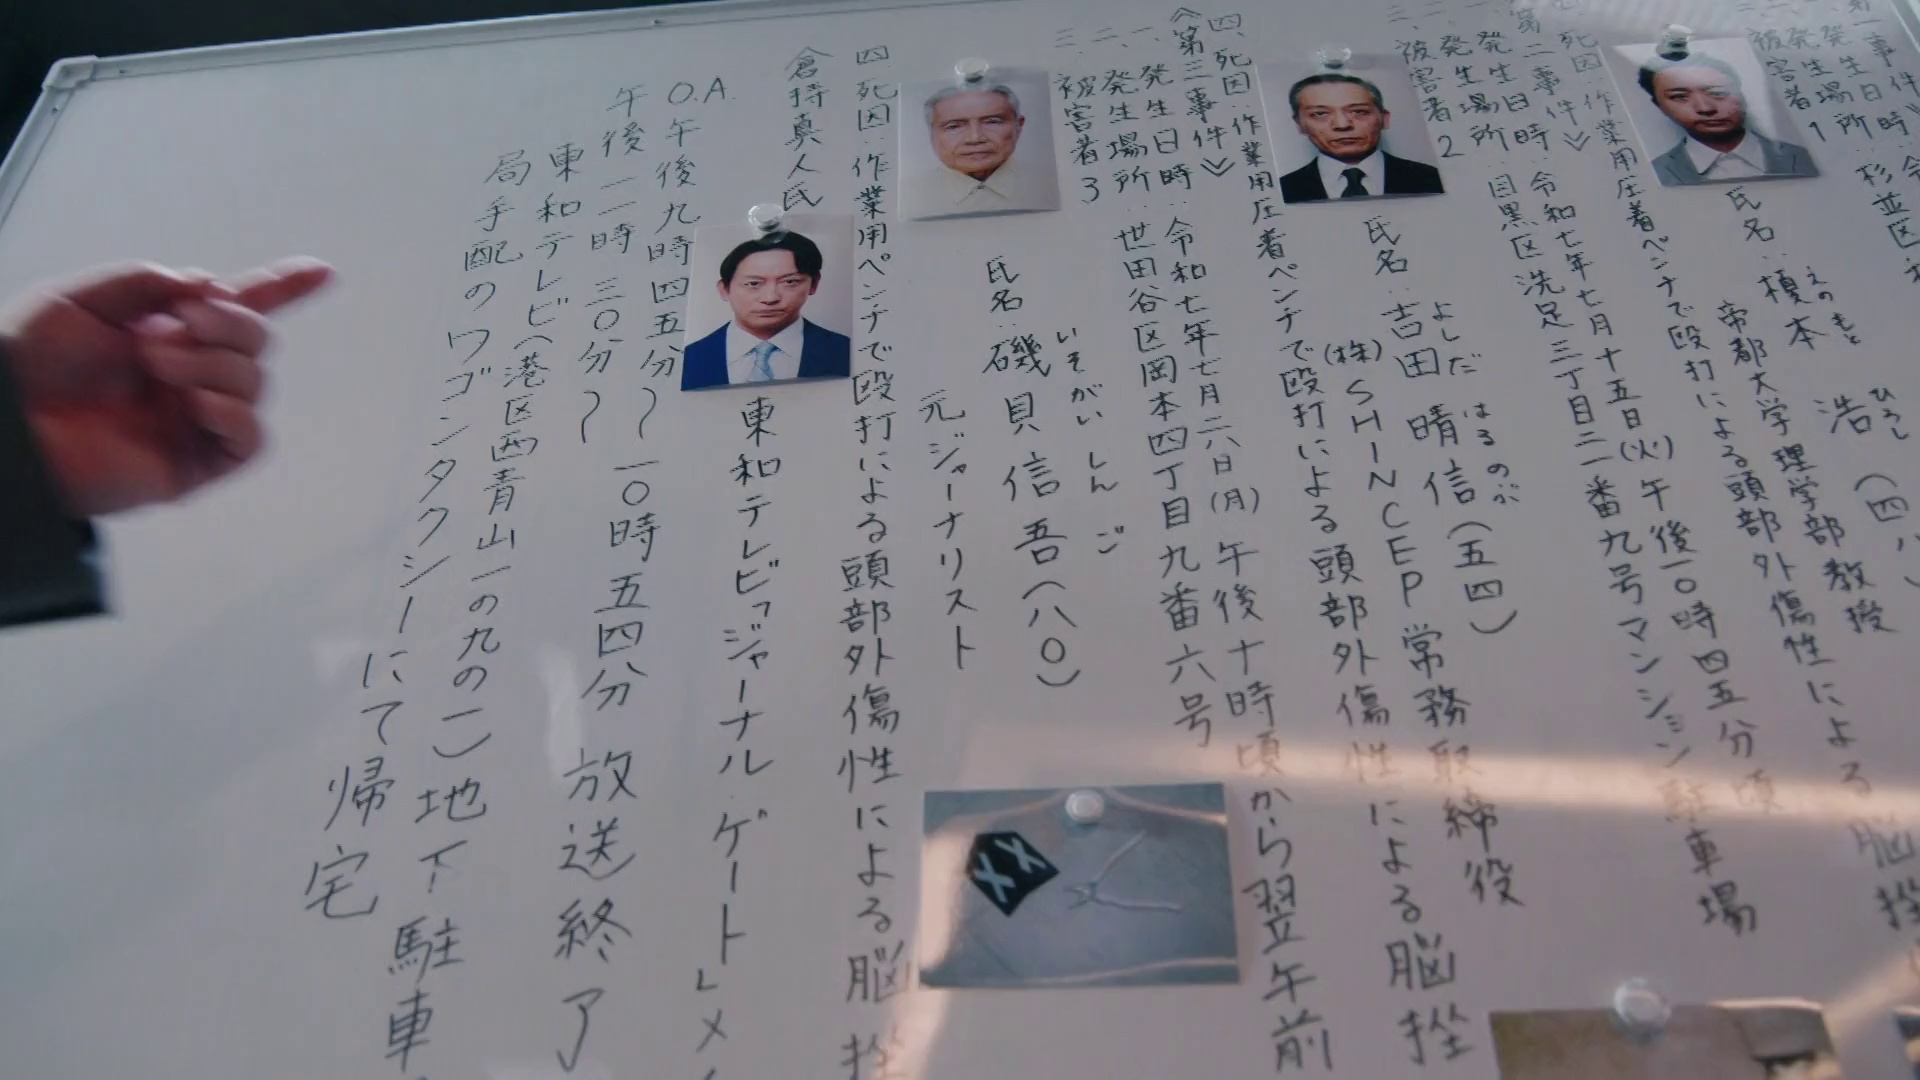 第一事件》
発生日時
発生場所 杉並区
被害者1
氏名:榎本 浩(四八)
えのもと ひろし
帝都大学理学部教授
死因:作業用圧着ペンチで殴打による頭部外傷性による脳挫
第二事件》
発生日時:令和七年七月十五日(火)午後一〇時四五分頃
発生場所:目黒区洗足三丁目二一番九号マンション駐車場
被害者2
氏名:吉田 晴信(五四)
よしだ はるのぶ
(株)SHINCEP 常務取締役
四、死因:作業用圧着ペンチで殴打による頭部外傷性による脳挫
《第三事件》
一、発生日時:令和七年七月二八日(月)午後十時頃から翌午前
二、発生場所:世田谷区岡本四丁目九番六号
三、被害者3
氏名:磯貝 信吾(八〇)
いそがい しんご
元ジャーナリスト
四 死因:作業用ペンチで殴打による頭部外傷性による脳挫
倉持真人氏
東和テレビ「ジャーナル ゲート」メイ
O.A. 午後九時四五分〜一〇時五四分 放送終了
午後一一時三〇分〜
東和テレビ(港区西青山一の九の一)地下駐車
局手配のワゴンタクシーにて帰宅
XX